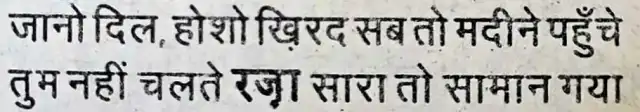 जानो दिल, होशो ख़िरद सब तो मदीने पहुँचे
तुम नहीं चलते रज़ा सारा तो सामान गया